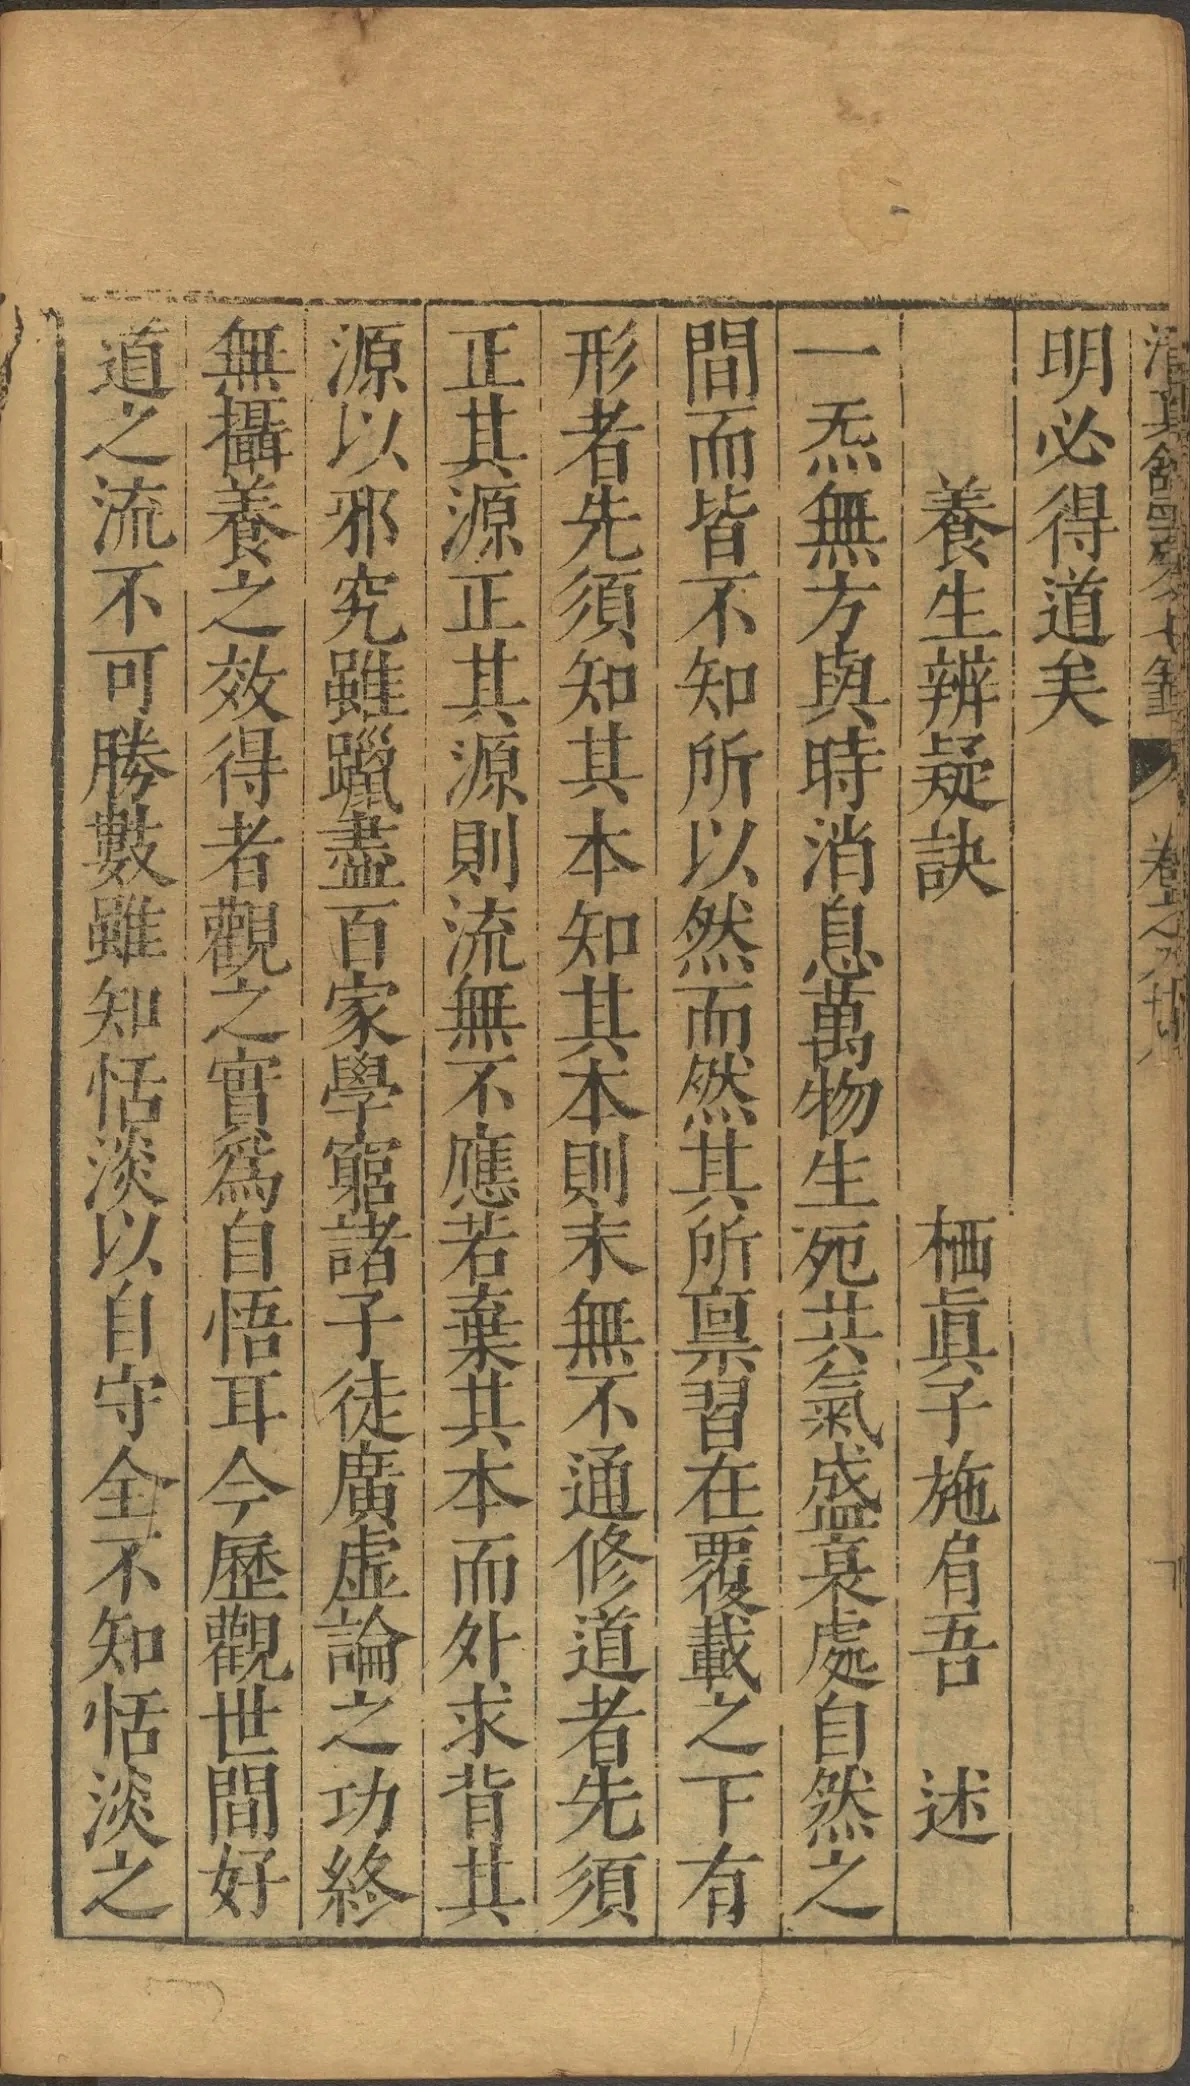 明必得道矣
養生辨疑訣 栖眞子施肩吾 述
一炁無方與時消息萬物生死共氣盛衰處自然之
間而皆不知所以然而然其所稟習在覆載之下有
形者先須知其本知其本則末無不通修道者先須
正其源正其源則流無不應若棄其本而外求背其
源以邪究雖躐盡百家學窮諸子徒廣虛論之功終
無攝養之效得者觀之實爲自悟耳今歷觀世間好
道之流不可勝數雖知恬淡以自守全不知恬淡之